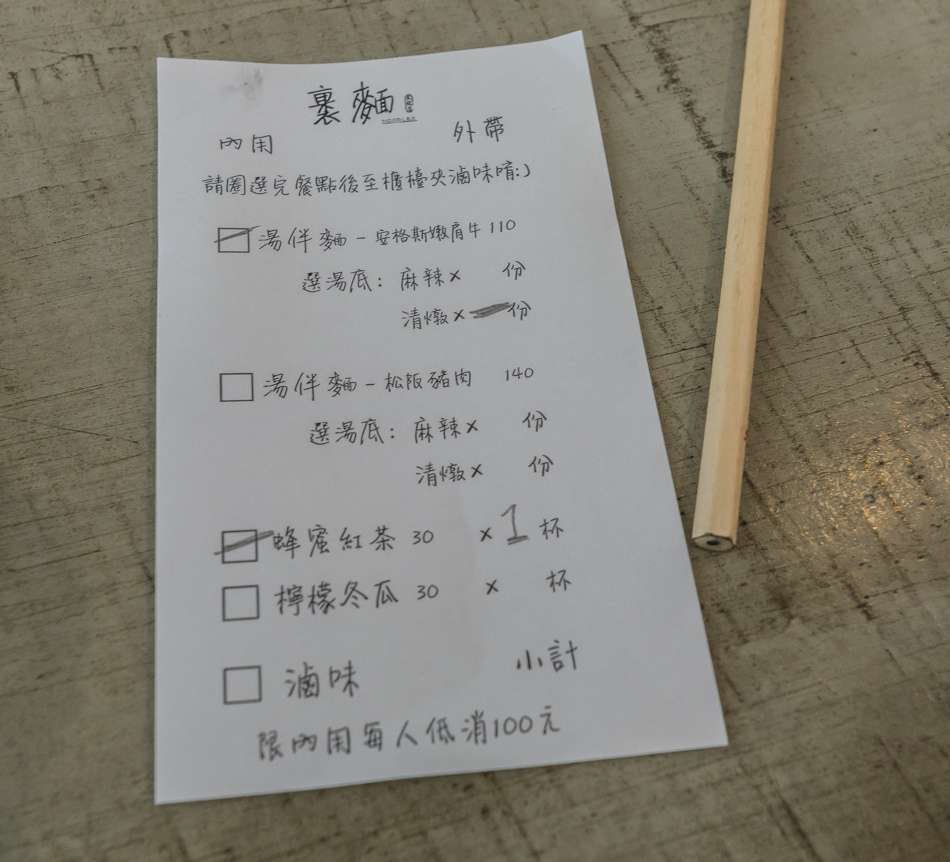 裹麵
內用 外帶
請圈選完餐點後至櫃檯夾滷味唷:)
湯伴麵-安格斯嫩肩牛 110
選湯底: 麻辣x 份
清燉x 份
湯伴麵-松阪豬肉 140
選湯底: 麻辣x 份
清燉x 份
蜂蜜紅茶 30 x 1 杯
檸檬冬瓜 30 x 杯
滷味 小計
限內用每人低消100元